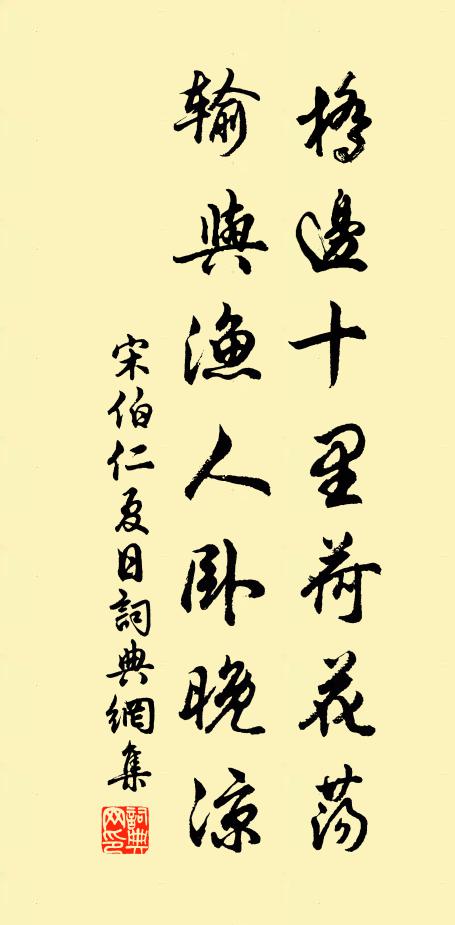 橋邊十里荷花蕩
輸與漁人臥晚涼
宋伯仁夏日詞典網集
詞典網印